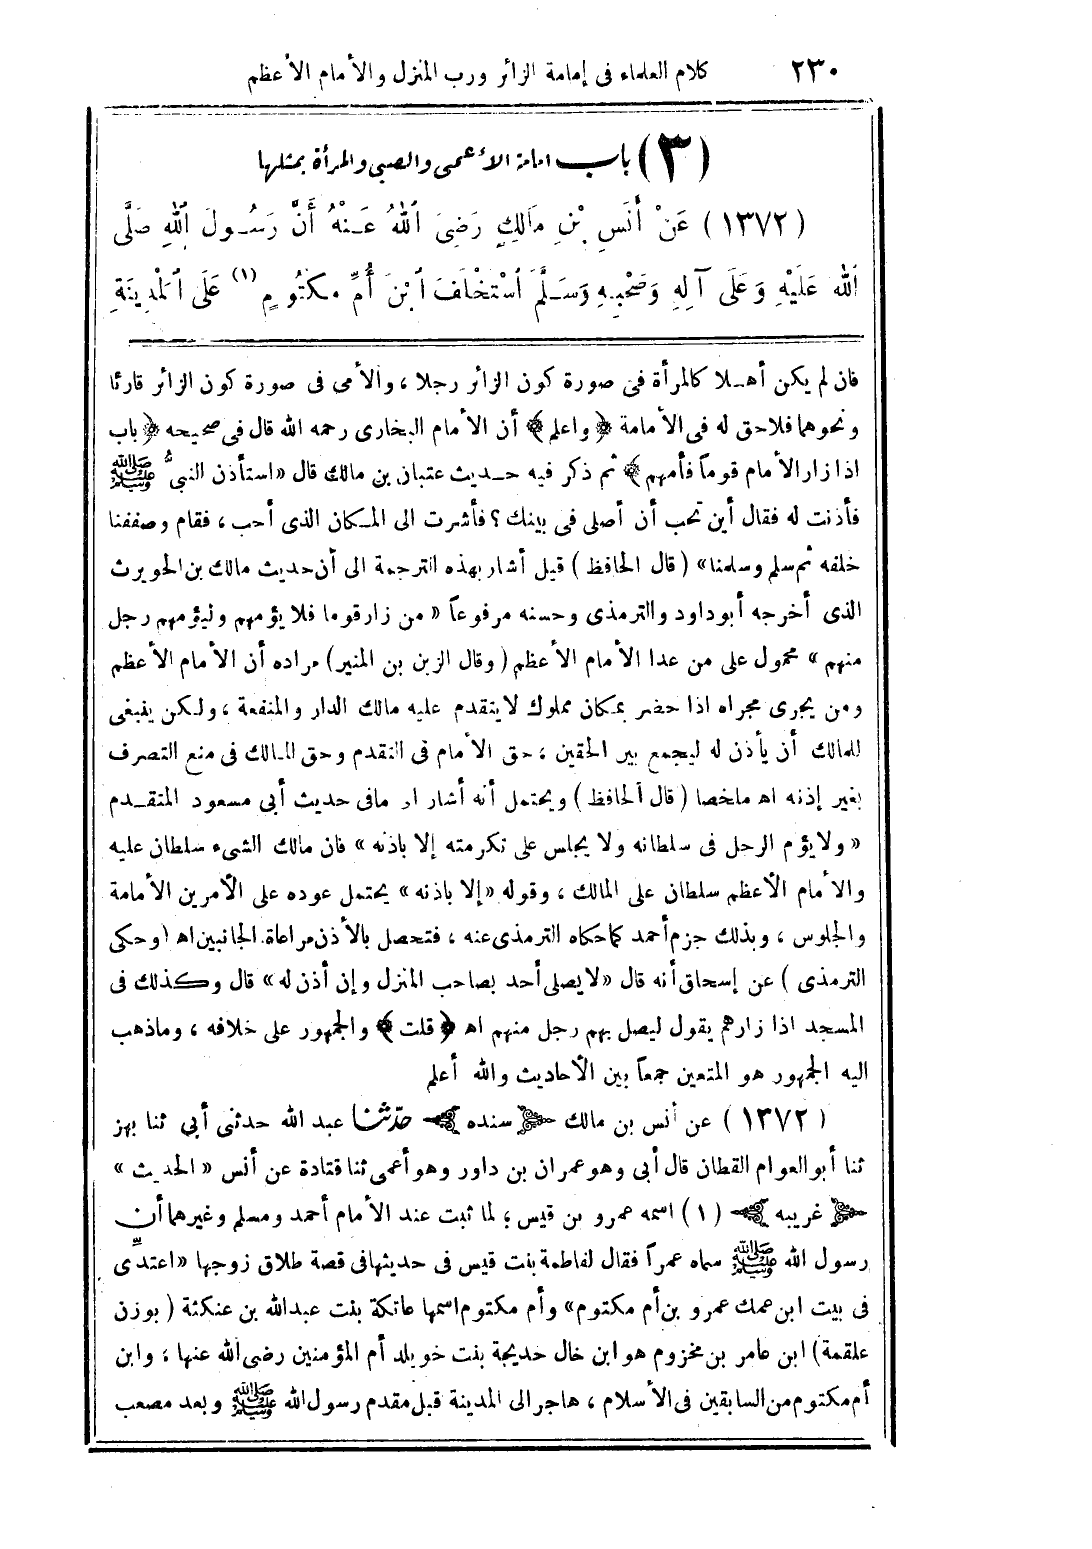 ٢٣٠ كلام العلماء فى إمامة الزائر ورب المنزل والأمام الأعظم
(٣) باب امامة الأعمى والصبى والمرأة بمثلها
(١٣٧٢) عَنْ أَنَسِ بْنِ مَالِكٍ رَضِىَ ٱللهُ عَنْهُ أَنَّ رَسُولَ ٱللهِ صَلَّى
ٱللهُ عَلَيْهِ وَعَلَى آلِهِ وَصَحْبِهِ وَسَلَّمَ ٱسْتَخْلَفَ ٱبْنَ أُمِّ مَكْتُومٍ (١) عَلَى ٱلْمَدِينَةِ
فان لم يكن أهلا كالمرأة فى صورة كون الزائر رجلا ، والأمى فى صورة كون الزائر قارئا
ونحوهما فلاحق له فى الأمامة ﴿واعلم﴾ أن الأمام البخارى رحمه الله قال فى صحيحه ﴿باب
اذا زار الأمام قوماً فأمهم﴾ ثم ذكر فيه حديث عتبان بن مالك قال «استأذن النبىُّ ﷺ
فأذنت له فقال أين تحب أن أصلى فى بيتك ؟ فأشرت الى المكان الذى أحب ، فقام وصففنا
خلفه ثم سلم وسلمنا» (قال الحافظ) قيل أشار بهذه الترجمة الى أن حديث مالك بن الحويرث
الذى أخرجه أبوداود والترمذى وحسنه مرفوعاً «من زار قوما فلا يؤمهم وليؤمهم رجل
منهم» محمول على من عدا الأمام الأعظم (وقال الزين بن المنير) مراده أن الأمام الأعظم
ومن يجرى مجراه اذا حضر بمكان مملوك لايتقدم عليه مالك الدار والمنفعة ، ولكن ينبغى
للمالك أن يأذن له ليجمع بين الحقين ، حق الأمام فى التقدم وحق المالك فى منع التصرف
بغير إذنه اه ملخصا (قال الحافظ) ويحتمل أنه أشار الى مافى حديث أبى مسعود المتقدم
«ولا يؤم الرجل فى سلطانه ولا يجلس على تكرمته إلا باذنه» فان مالك الشىء سلطان عليه
والأمام الأعظم سلطان على المالك ، وقوله «إلا باذنه» يحتمل عوده على الأمرين الأمامة
والجلوس ، وبذلك جزم أحمد كما حكاه الترمذى عنه ، فتحصل بالأذن مراعاة الجانبين اه (وحكى
الترمذى) عن إسحاق أنه قال «لا يصلى أحد بصاحب المنزل وإن أذن له» قال وكذلك فى
المسجد اذا زارهم يقول ليصل بهم رجل منهم اه ﴿قلت﴾ والجمهور على خلافه ، وماذهب
اليه الجمهور هو المتعين جمعاً بين الأحاديث والله أعلم
(١٣٧٢) عن أنس بن مالك ﴿سنده﴾ حدّثنا عبد الله حدثنى أبى ثنا بهز
ثنا أبو العوام القطان قال أبى وهو عمران بن داور وهو أعمى ثنا قتادة عن أنس «الحديث»
﴿غريبه﴾ (١) اسمه عمرو بن قيس ؛ لما ثبت عند الأمام أحمد ومسلم وغيرهما أن
رسول الله ﷺ سماه عمراً فقال لفاطمة بنت قيس فى حديثها فى قصة طلاق زوجها «اعتدِّى
فى بيت ابن عمك عمرو بن أم مكتوم» وأم مكتوم اسمها عاتكة بنت عبدالله بن عنكثة (بوزن
علقمة) ابن عامر بن مخزوم هو ابن خال خديجة بنت خويلد أم المؤمنين رضى الله عنها ؛ وابن
أم مكتوم من السابقين فى الأسلام ، هاجر الى المدينة قبل مقدم رسول الله ﷺ وبعد مصعب